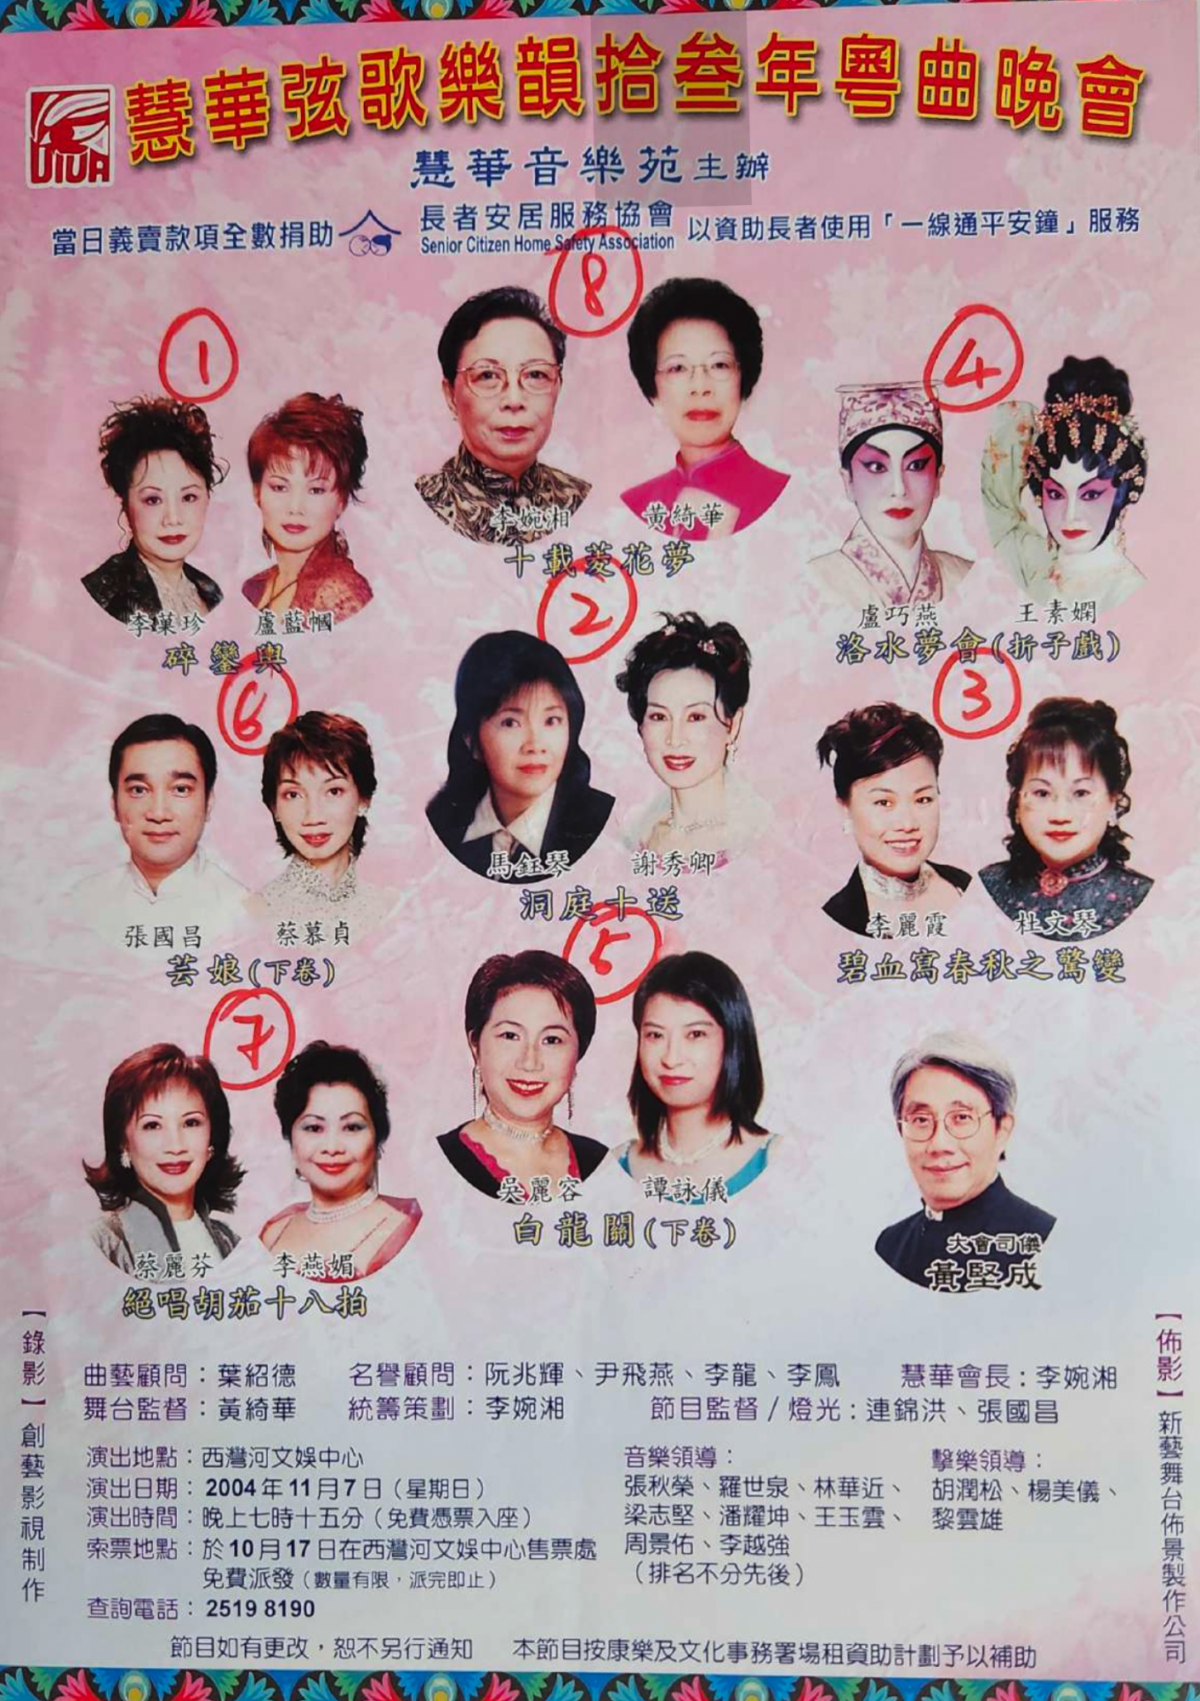 VIVA
慧華弦歌樂韻拾叁年粵曲晚會
慧華音樂苑主辦
當日義賣款項全數捐助 長者安居服務協會 以資助長者使用「一線通平安鐘」服務
Senior Citizen Home Safety Association
8
1
4
李婉湘 黃綺華
十載菱花夢
李菓珍 盧藍幗
碎鑾輿
盧巧燕 王素嫻
洛水夢會(折子戲)
2
6
3
馬鈺琴 謝秀卿
洞庭十送
張國昌 蔡慕貞
芸娘(下卷)
李麗霞 杜文琴
碧血寫春秋之驚變
5
7
吳麗容 譚詠儀
白龍關(下卷)
蔡麗芬 李燕媚
絕唱胡茄十八拍
大會司儀
黃堅成
【錄影】創藝影視制作
【佈影】新藝舞台佈景製作公司
曲藝顧問：葉紹德 名譽顧問：阮兆輝、尹飛燕、李龍、李鳳 慧華會長：李婉湘
舞台監督：黃綺華 統籌策劃：李婉湘 節目監督/燈光：連錦洪、張國昌
演出地點：西灣河文娛中心
演出日期：2004年11月7日（星期日）
演出時間：晚上七時十五分（免費憑票入座）
索票地點：於10月17日在西灣河文娛中心售票處
免費派發（數量有限，派完即止）
查詢電話：2519 8190
音樂領導：
張秋榮、羅世泉、林華近、
梁志堅、潘耀坤、王玉雲、
周景佑、李越強
（排名不分先後）
擊樂領導：
胡潤松、楊美儀、
黎雲雄
節目如有更改，恕不另行通知 本節目按康樂及文化事務署場租資助計劃予以補助